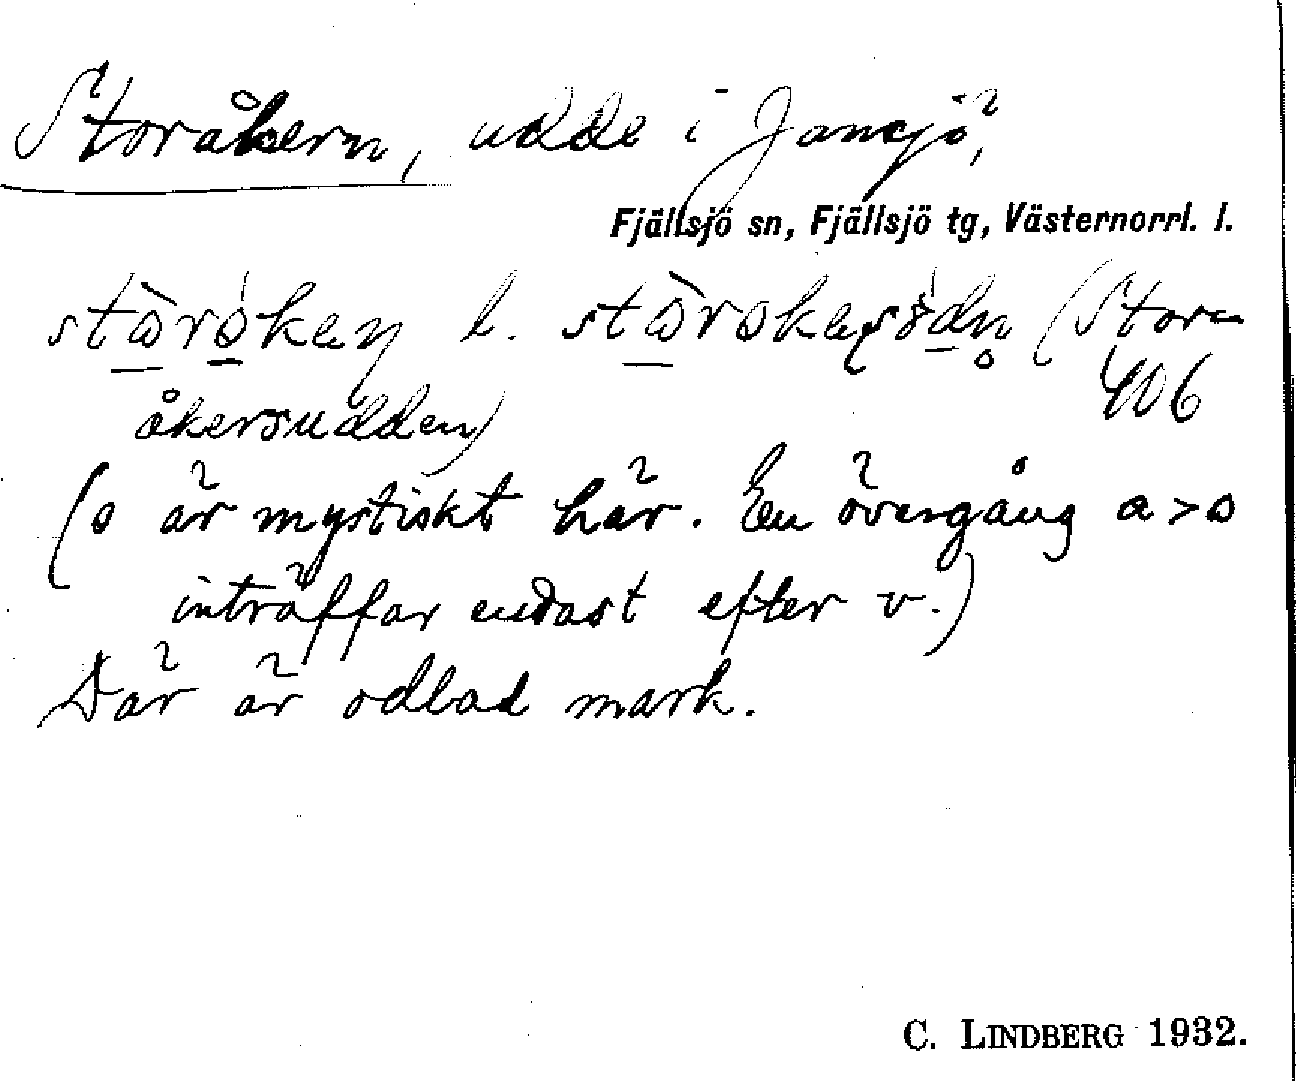 Storåkern, udde i Jansjö,
Fjällsjö sn, Fjällsjö tg, Västernorrl. l.
l. (Stor-
åkersudden) 406
(o är mystiskt här. En övergång a > o
inträffar endast efter v.)
Där är odlad mark.
C. LINDBERG 1932.